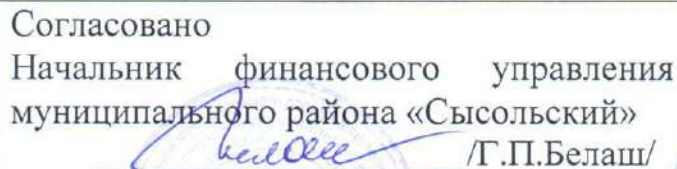 Согласовано
Начальник финансового управления
муниципального района «Сысольский»
/Г.П.Белаш/